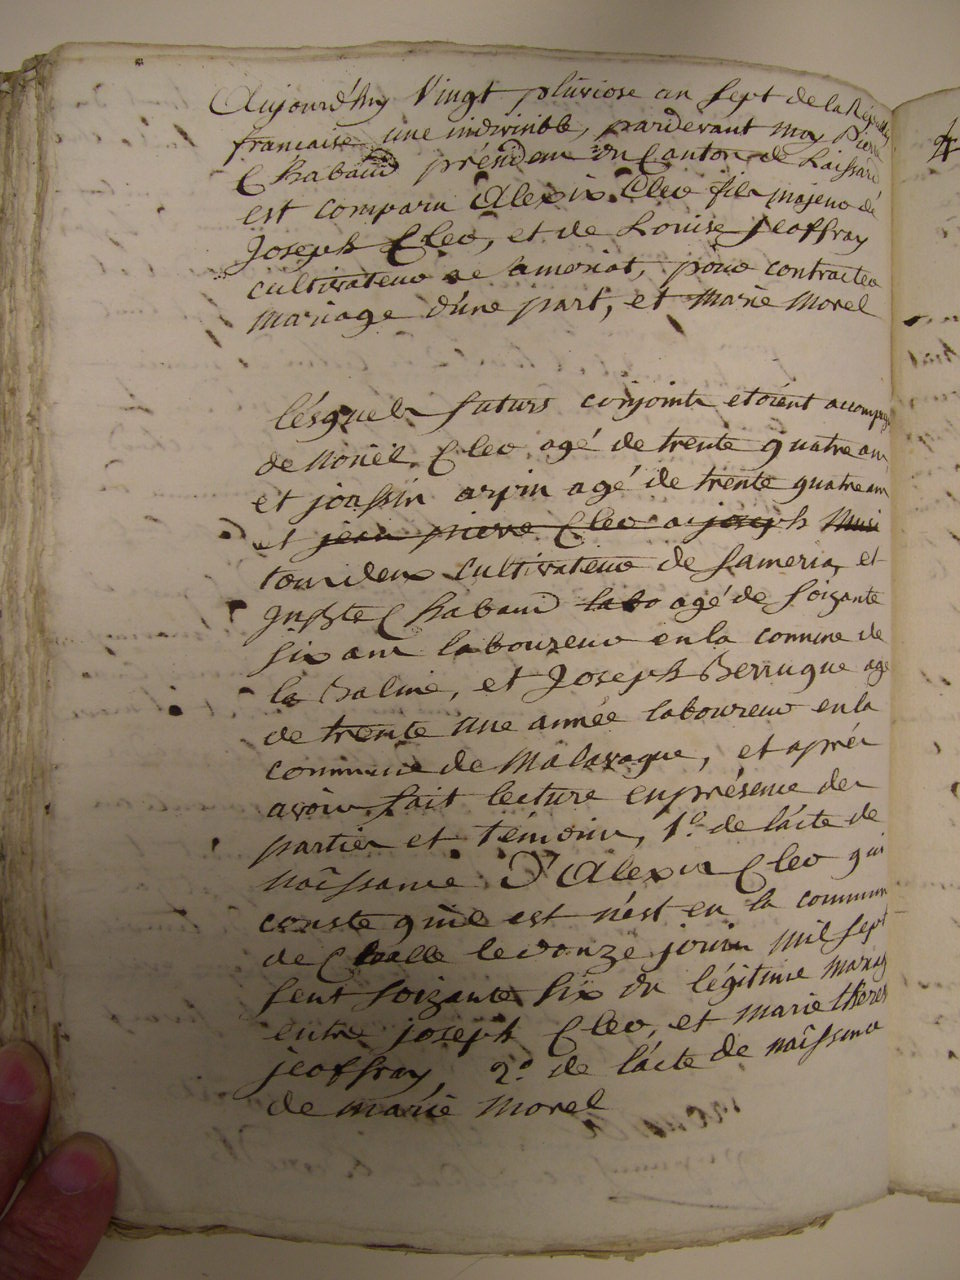 Aujourd'huy Vingt pluviose an sept de la République
francaise une indivisible, pardevant moy Pierre
Chabaud présidan du Canton de Laissard
est comparu Alexis Cleo fils majeuo de
Joseph Cleo, et de Louise Jeoffray
cultivateuo de sameriat, pouo contracteo
mariage d'une part, et Marie Morel
lésquels futurs conjoints etoient accompag
de Noïèl Cleo agé de trente quatre ans
et joassin arpin agé de trente quatre ans
et jean pierre Cleo a joseph
tous deux cultivateuo de Sameria et
Juste Chabaud labo agé de soizante
six ans laboureuo en la commune de
la Balme, et Joseph Berruque age
de trente une année laboureuo en la
commune de Malavaque, et après
avoir fait lecture en présence des
parties et témoins, 1.º de lácte de
naîssance D'Alexis Cleo qui
conste quil est nést en la commun
de le onze jouin mil sept
sent soizante six du légitime mariag
entre joseph Cleo, et marie theres
jeoffray, 2.º de lácte de naîssance
de marie Morel